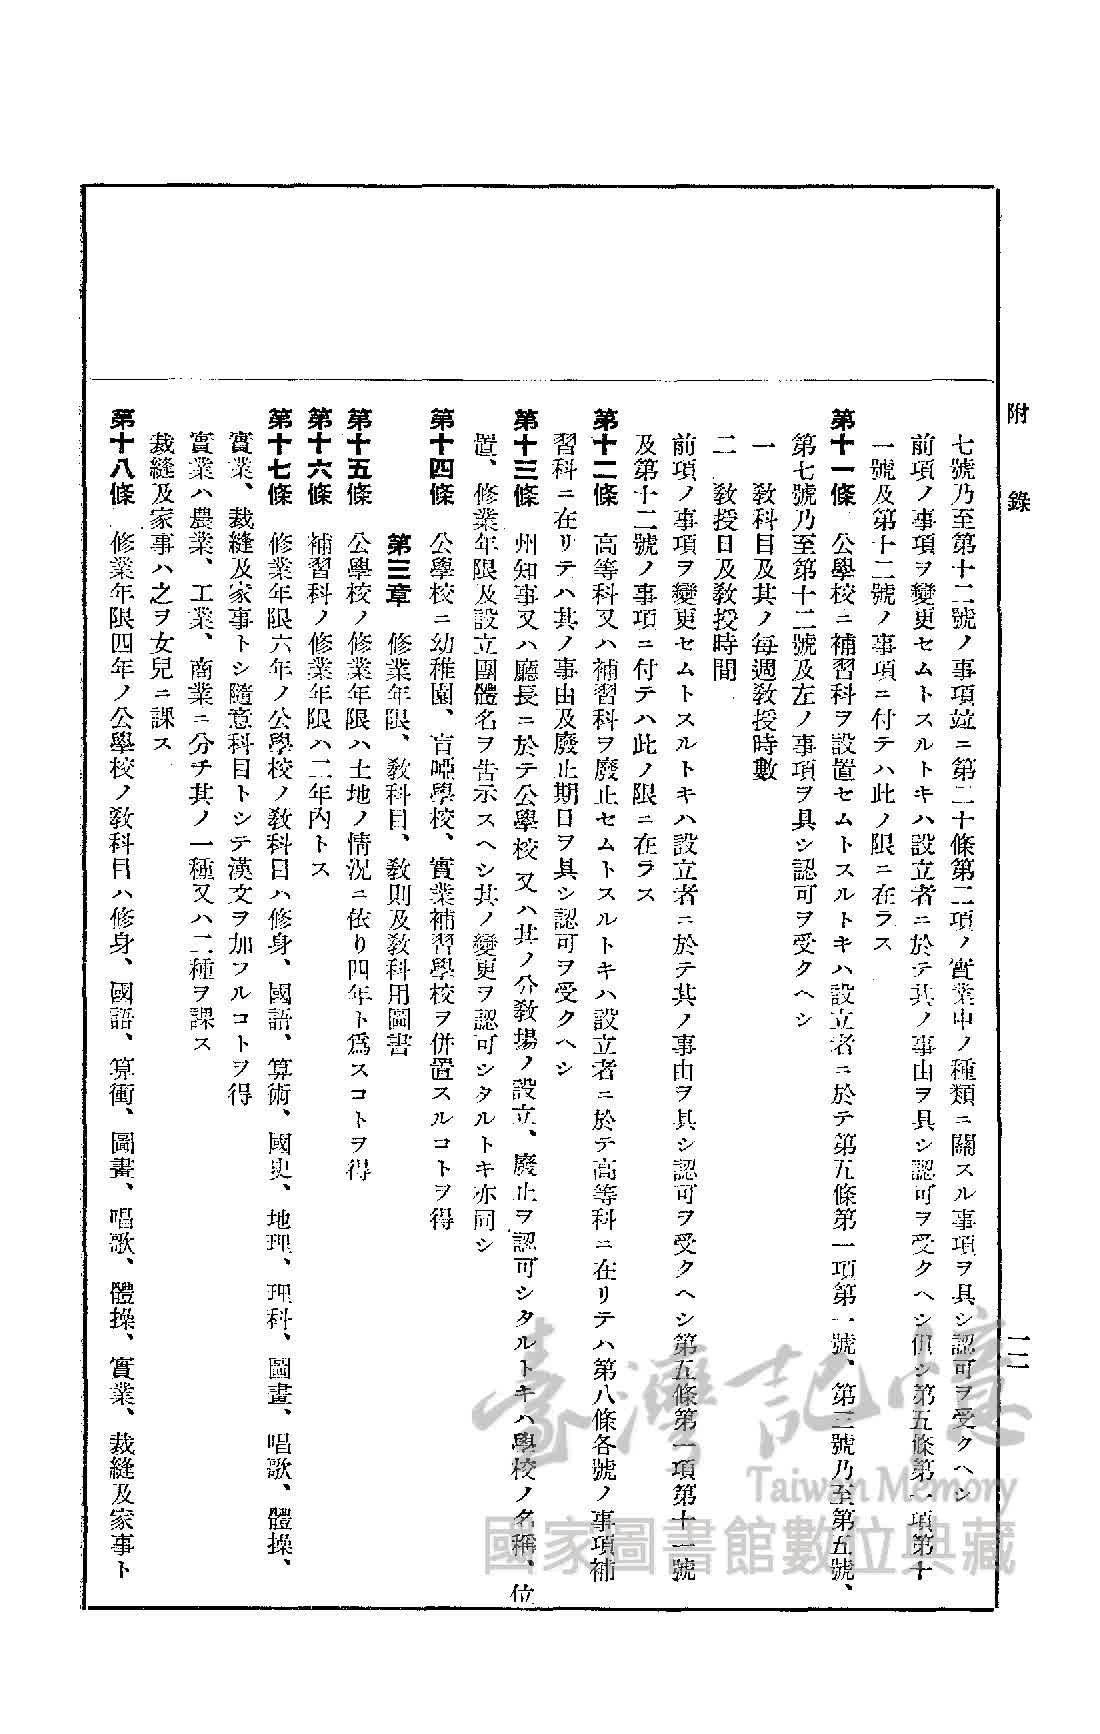 附錄
一二
七號乃至第十二號ノ事項竝ニ第二十條第二項ノ實業中ノ種類ニ關スル事項ヲ具シ認可ヲ受クヘシ
前項ノ事項ヲ變更セムトスルトキハ設立者ニ於テ其ノ事由ヲ具シ認可ヲ受クヘシ但シ第五條第一項第十
一號及第十二號ノ事項ニ付テハ此ノ限ニ在ラス
第十一條 公學校ニ補習科ヲ設置セムトスルトキハ設立者ニ於テ第五條第一項第一號、第三號乃至第五號、
第七號乃至第十二號及左ノ事項ヲ具シ認可ヲ受クヘシ
一 敎科目及其ノ每週敎授時數
二 敎授日及敎授時間
前項ノ事項ヲ變更セムトスルトキハ設立者ニ於テ其ノ事由ヲ具シ認可ヲ受クヘシ第五條第一項第十一號
及第十二號ノ事項ニ付テハ此ノ限ニ在ラス
第十二條 高等科又ハ補習科ヲ廢止セムトスルトキハ設立者ニ於テ高等科ニ在リテハ第八條各號ノ事項補
習科ニ在リテハ其ノ事由及廢止期日ヲ具シ認可ヲ受クヘシ
第十三條 州知事又ハ廳長ニ於テ公學校又ハ其ノ分敎場ノ設立、廢止ヲ認可シタルトキハ學校ノ名稱、位
置、修業年限及設立團體名ヲ告示スヘシ其ノ變更ヲ認可シタルトキ亦同シ
第十四條 公學校ニ幼稚園、盲啞學校、實業補習學校ヲ併置スルコトヲ得
第三章 修業年限、敎科目、敎則及敎科用圖書
第十五條 公學校ノ修業年限ハ土地ノ情況ニ依リ四年ト爲スコトヲ得
第十六條 補習科ノ修業年限ハ二年內トス
第十七條 修業年限六年ノ公學校ノ敎科目ハ修身、國語、算術、國史、地理、理科、圖畫、唱歌、體操、
實業、裁縫及家事トシ隨意科目トシテ漢文ヲ加フルコトヲ得
實業ハ農業、工業、商業ニ分チ其ノ一種又ハ二種ヲ課ス
裁縫及家事ハ之ヲ女兒ニ課ス
第十八條 修業年限四年ノ公學校ノ敎科目ハ修身、國語、算術、圖畫、唱歌、體操、實業、裁縫及家事ト
臺灣記憶
Taiwan Memory
國家圖書館數位典藏